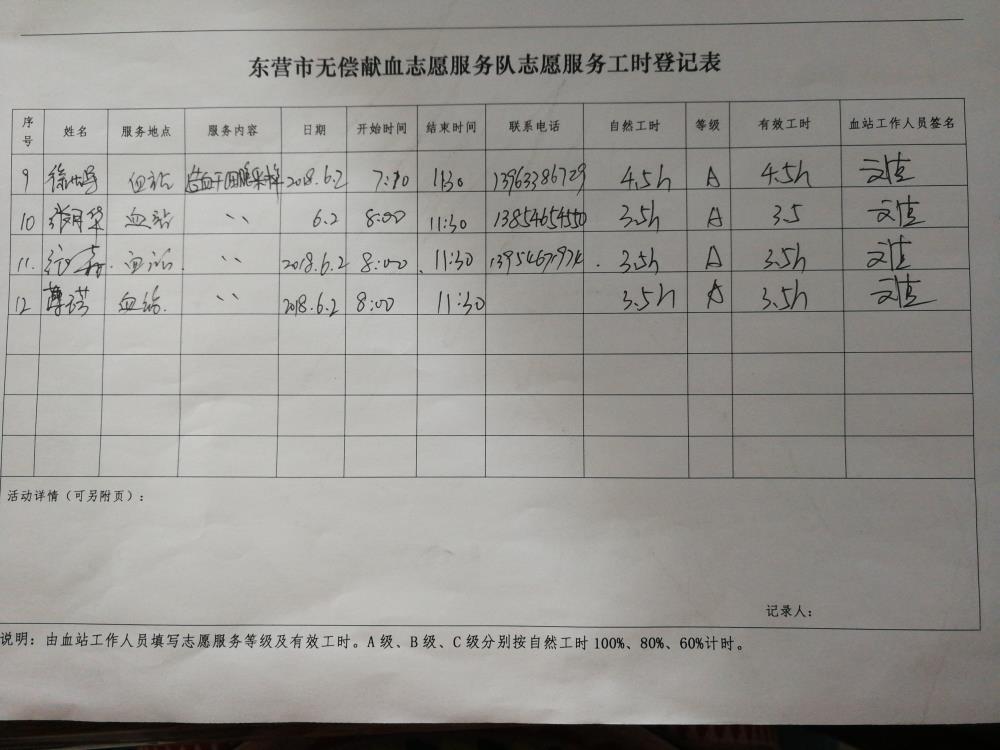 东营市无偿献血志愿服务队志愿服务工时登记表
序号 姓名 服务地点 服务内容 日期 开始时间 结束时间 联系电话 自然工时 等级 有效工时 血站工作人员签名
9 血站 2018.6.2 7:10 11:30 13963386729 4.5h A 4.5h
10 血站 〃 6.2 8:00 11:30 13854654550 3.5h A 3.5
11. 血站 〃 2018.6.2 8:00 11:30 3.5h A 3.5h
12 血站 〃 2018.6.2 8:00 11:30 3.5h A 3.5h
活动详情（可另附页）：
记录人：
说明：由血站工作人员填写志愿服务等级及有效工时。A级、B级、C级分别按自然工时100%、80%、60%计时。